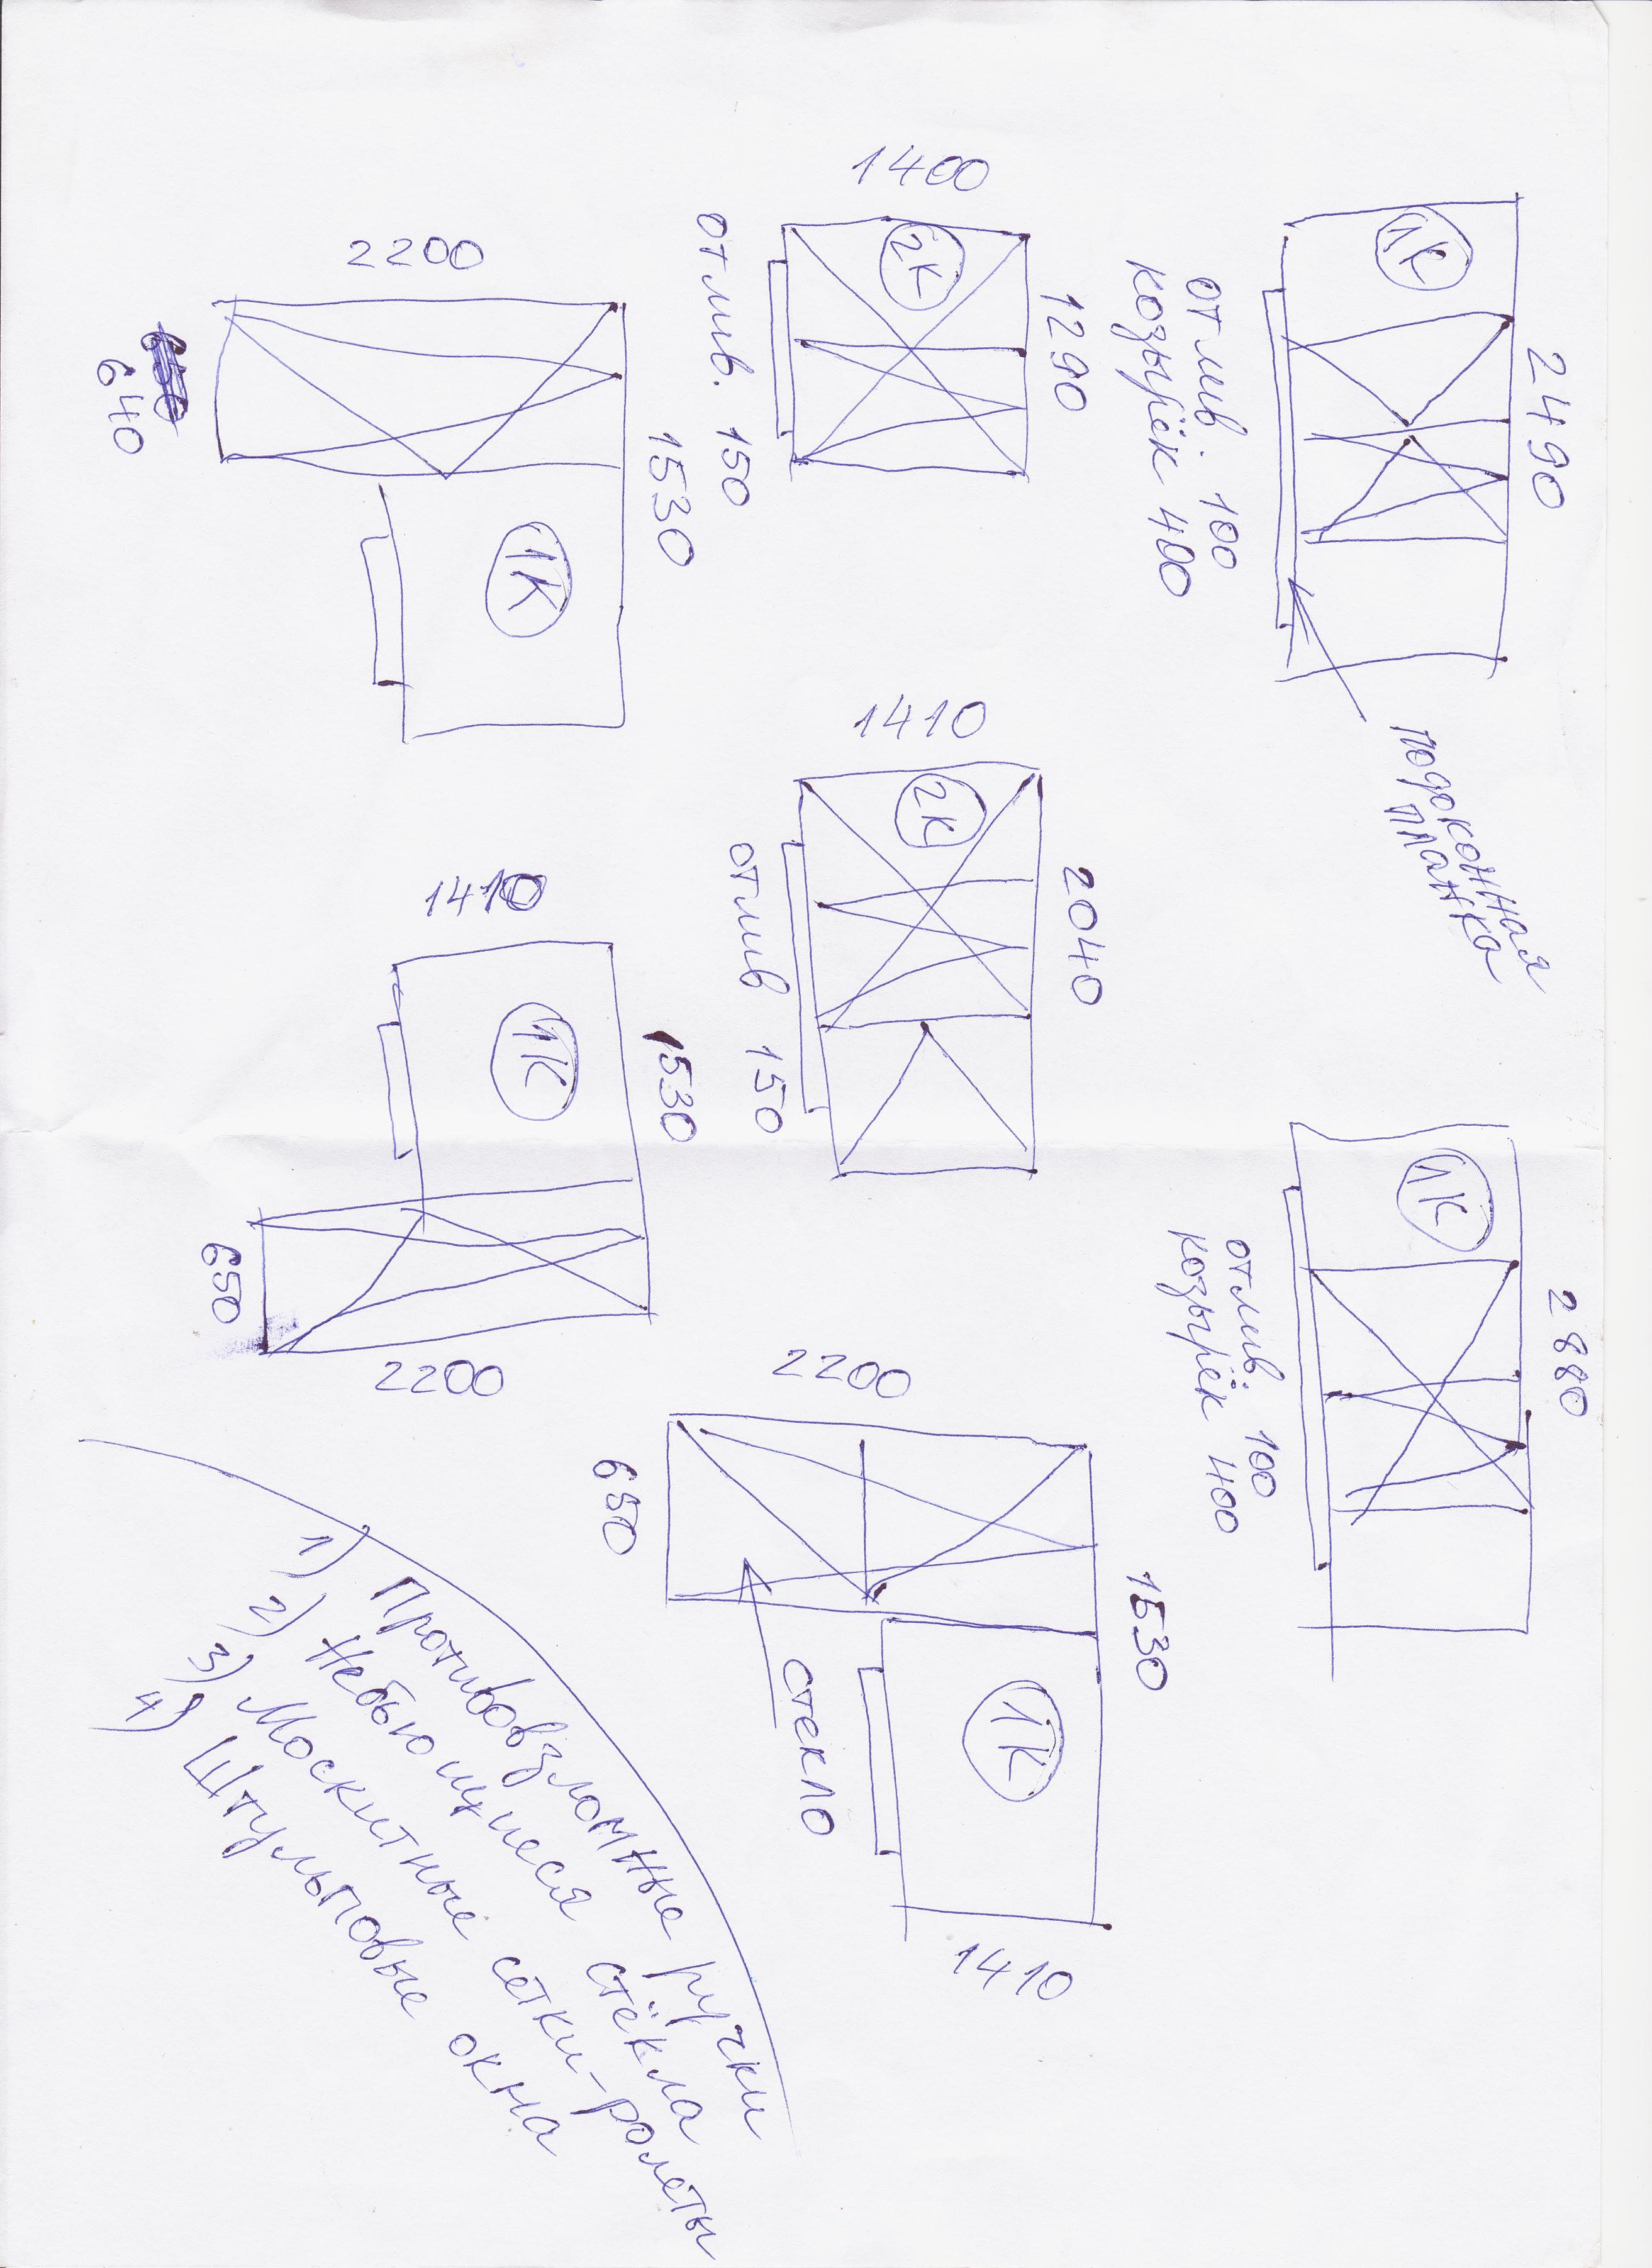 2490
1К
отлив: 100
козырёк 400
подоконная
планка
2880
1К
отлив: 100
козырёк 400
1290
1400
2К
отлив. 150
2040
1410
2К
отлив 150
1530
2200
1К
1410
650
стекло
1530
2200
1К
640
1530
1410
1К
2200
650
1) Противовзломные ручки
2) Небьющиеся стёкла
3) Москитные сетки-ролеты
4) Штульповые окна